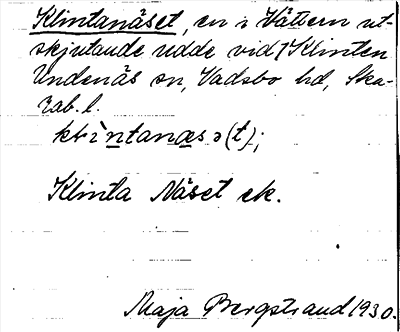 Klintanäset, en i Vättern ut-
skjutande udde vid 1 Klinten
Undenäs sn, Vadsbo hd, Ska-
rab. l.
klìntanæsə(t);
Klinta Näset ek.
Maja Bergstrand 1930.